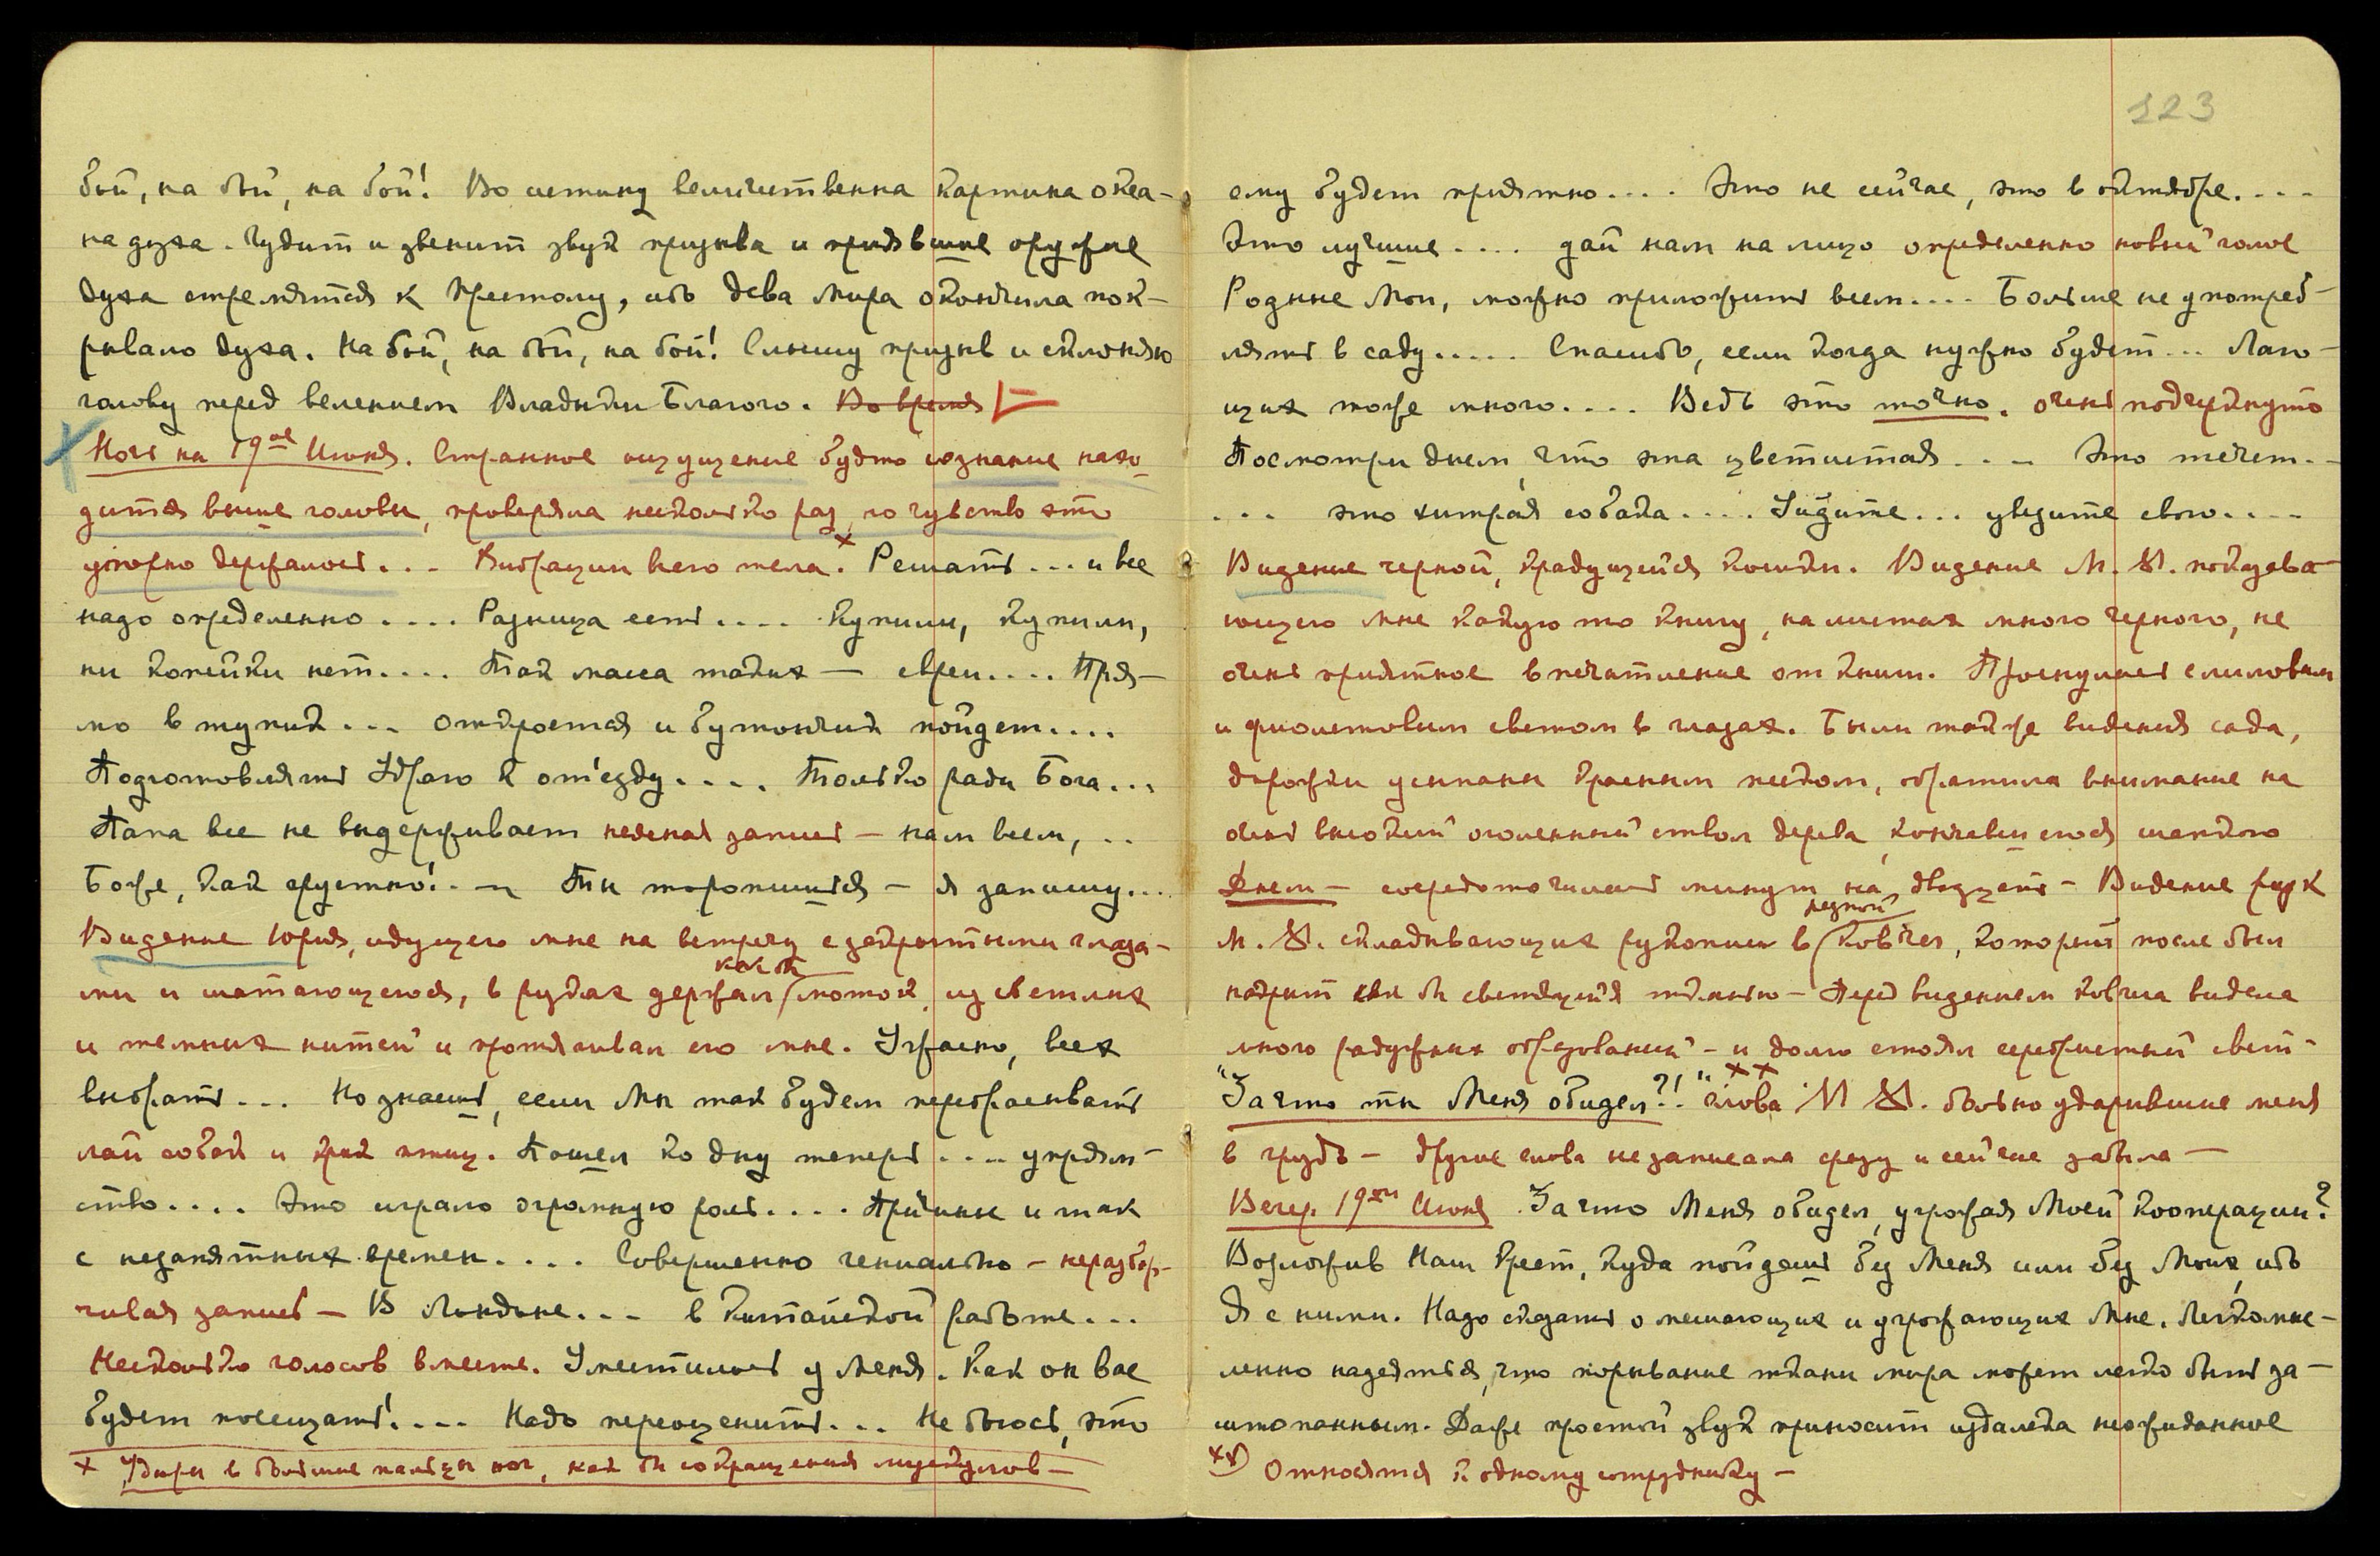 бой, на бой, на бой! Во истину величественна картина океа-
на духа. Гудит и звенит звук призыва и приявшие оружие
духа стремятся к Престолу, ибо дева Мира окончила пок-
рывало духа. На бой, на бой, на бой! Слышу призыв и склоняю
голову перед велением Владыки Благого. Во время
Ночь на 19ое Июня. Странное ощущение будто сознание нахо-
дится выше головы, проверяла несколько раз, но чувство это
упорно держалось... Вибрации всего тела.× Решать... и все
надо определенно.... Разница есть.... Купили, купили,
ни копейки нет.... Так масса таких — евреи.... Пря-
мо в тупик... откроется и бутончик пойдет....
Подготовлять Удраю к отъезду.... Только ради Бога...
Папа все не выдерживает неясная запись — нам всем,..
Боже, как грустно!.. Ты торопишься — я запишу...
Видение Юрия, идущего мне на встречу с закрытыми глаза-
ми и шатающегося, в руках держал как бы моток из светлых
и темных нитей и протягивал его мне. Ужасно, всех
выбрать... Но знаешь, если Мы так будем перебрасывать
лай собак и крик птиц. Пошел ко дну теперь.... упрям-
ство.... Это играло огромную роль.... Причины и так
с незапятных времен.... Совершенно гениально — неразбор-
чивая запись — В Лондоне... в китайской работе...
Несколько голосов вместе. Уместилось у Меня. Как он вас
будет посещать!.... Надо переоценить... Не бьюсь, это
× Удары в большие пальцы ног, как бы сокращения мускулов —
223
ему будет приятно.... Это не сейчас, это в октябре....
Это лучшие.... дай нам на лицо определенно новый голос
Родные Мои, можно приложить всем.... Больше не употреб-
лять в саду..... Спасибо, если когда нужно будет... Лаю-
щих тоже много.... Ведь это точно. очень подчеркнуто
Посмотри днем, что эта цветистая... Это течет..
... это хитрая собака.... Уйдите... уведите свою....
Видение черной, крадущейся кошки. Видение М. М. показыва-
ющего мне какую то книгу, на листах много черного, не
очень приятное впечатление от книги. Проснулась с лиловым
и фиолетовым светом в глазах. Были также видения сада,
дорожки усыпаны красным песком, обратила внимание на
очень высокий оголенный ствол дерева, кончавшегося шапкою
Днем — сосредоточилась минут на двадцать — Видение рук
М. М. складывающих рукописи в резной ковчег, который после был
покрыт как бы светящейся тканью — Перед видением ковчега видела
много радужных образований — и долго стоял серебристый свет —
"За что ты Меня обидел?!" ×× слова М М. больно ударившие меня
в грудь — другие слова не записала сразу и сейчас забыла —
Вечер. 19ого Июня За что Меня обидел, угрожая Моей Кооперации?
Возложив Наш Крест, куда пойдешь без Меня или без Моих, ибо
Я с ними. Надо сказать о мешающих и угрожающих Мне. Легкомыс-
ленно надеяться, что порывание ткани мира может легко быть за-
штопанным. Даже простой звук приносит издалека неожиданное
××) Относятся к одному сотруднику —